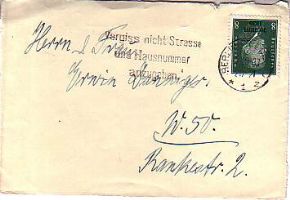 Herrn u. Frau
Vergiss nicht Strasse
und Hausnummer
anzugeben
Erwin
W. 50.
Rankestr. 2.
8 8